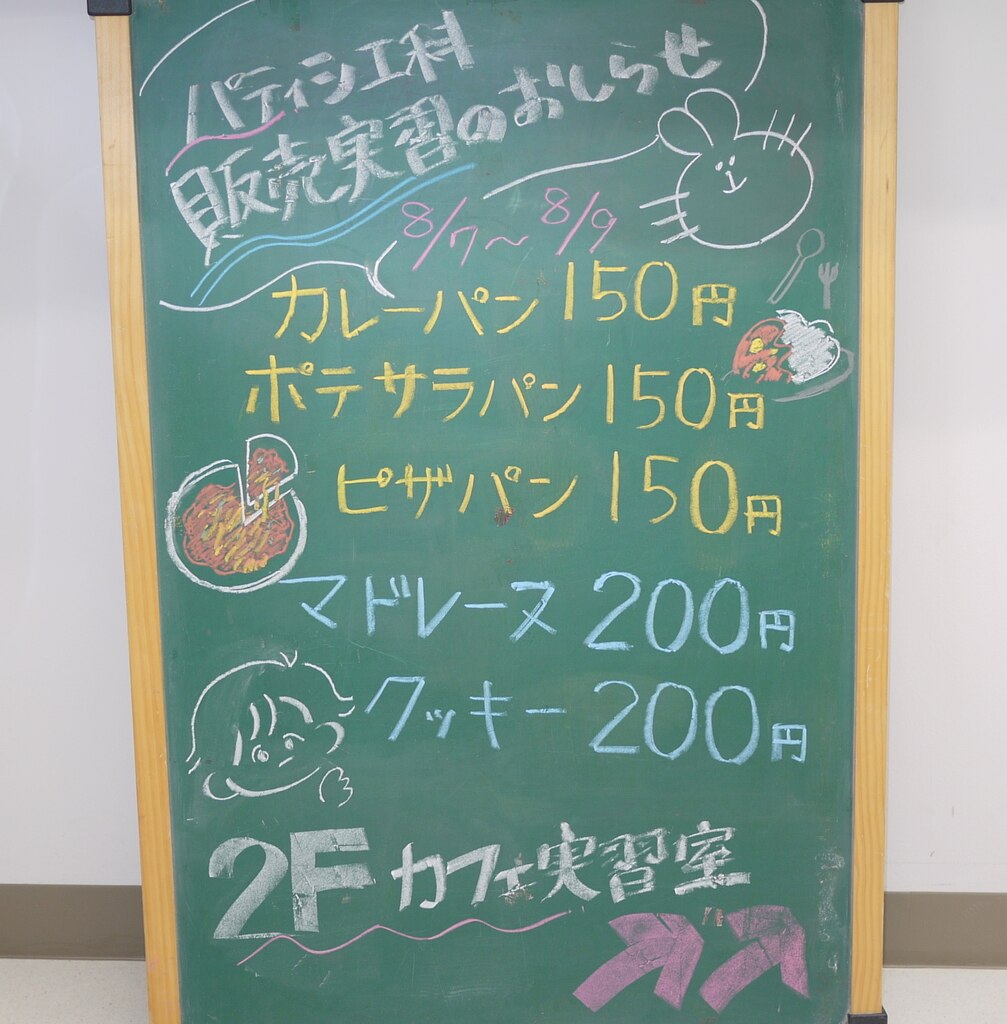 パティシエ科
販売実習のおしらせ
8/7〜8/9
カレーパン 150円
ポテサラパン 150円
ピザパン 150円
マドレーヌ 200円
クッキー 200円
2F カフェ実習室